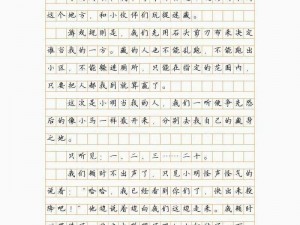 这个地方，和小伙伴们玩捉迷藏。
游戏规则是，我们先用石头剪刀布来决定
谁当我的一方。藏的人也不能乱跑，不能跑出
小区，不能躲进厕所，只能在指定的范围内，
只要把人都找到就算赢了。
这次是小明当我的人，我们一听便争先恐
后的像小马一样散开来，分别去我自己的藏身
之地。
只听见，一、二、三……二十。
我们顿时不出声了，只见小明怪声怪气的
说着：“哈哈，我已经看到你们了，快出来投
降吧！”他边说着边向我们这边走来。我顿时